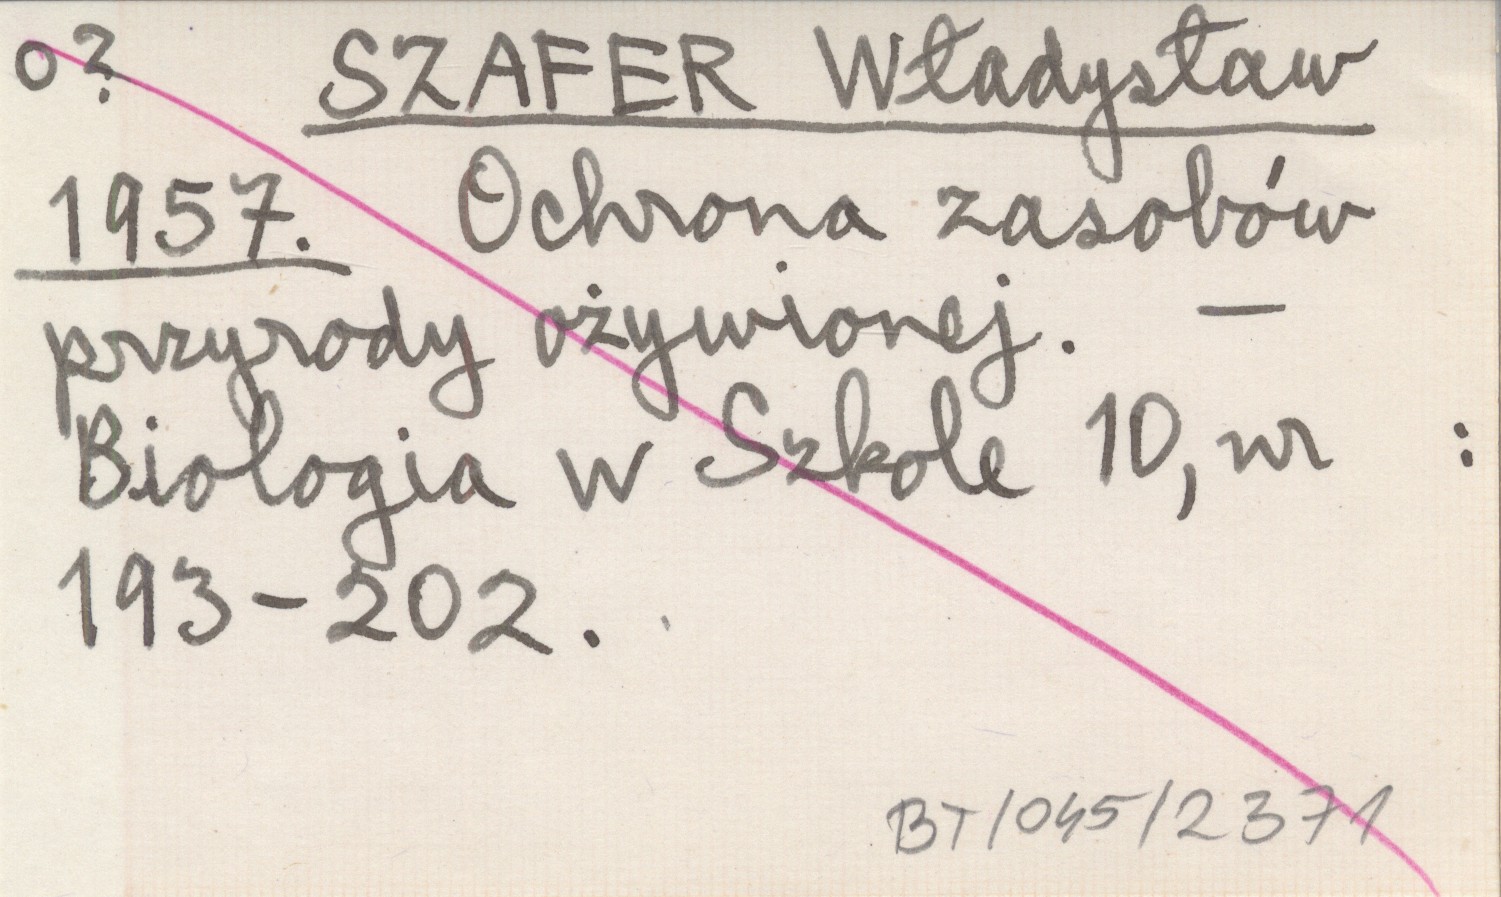 o? SZAFER Władysław
1957. Ochrona zasobów
przyrody ożywionej. —
Biologia w Szkole 10, nr :
193-202.
BT/045/2371